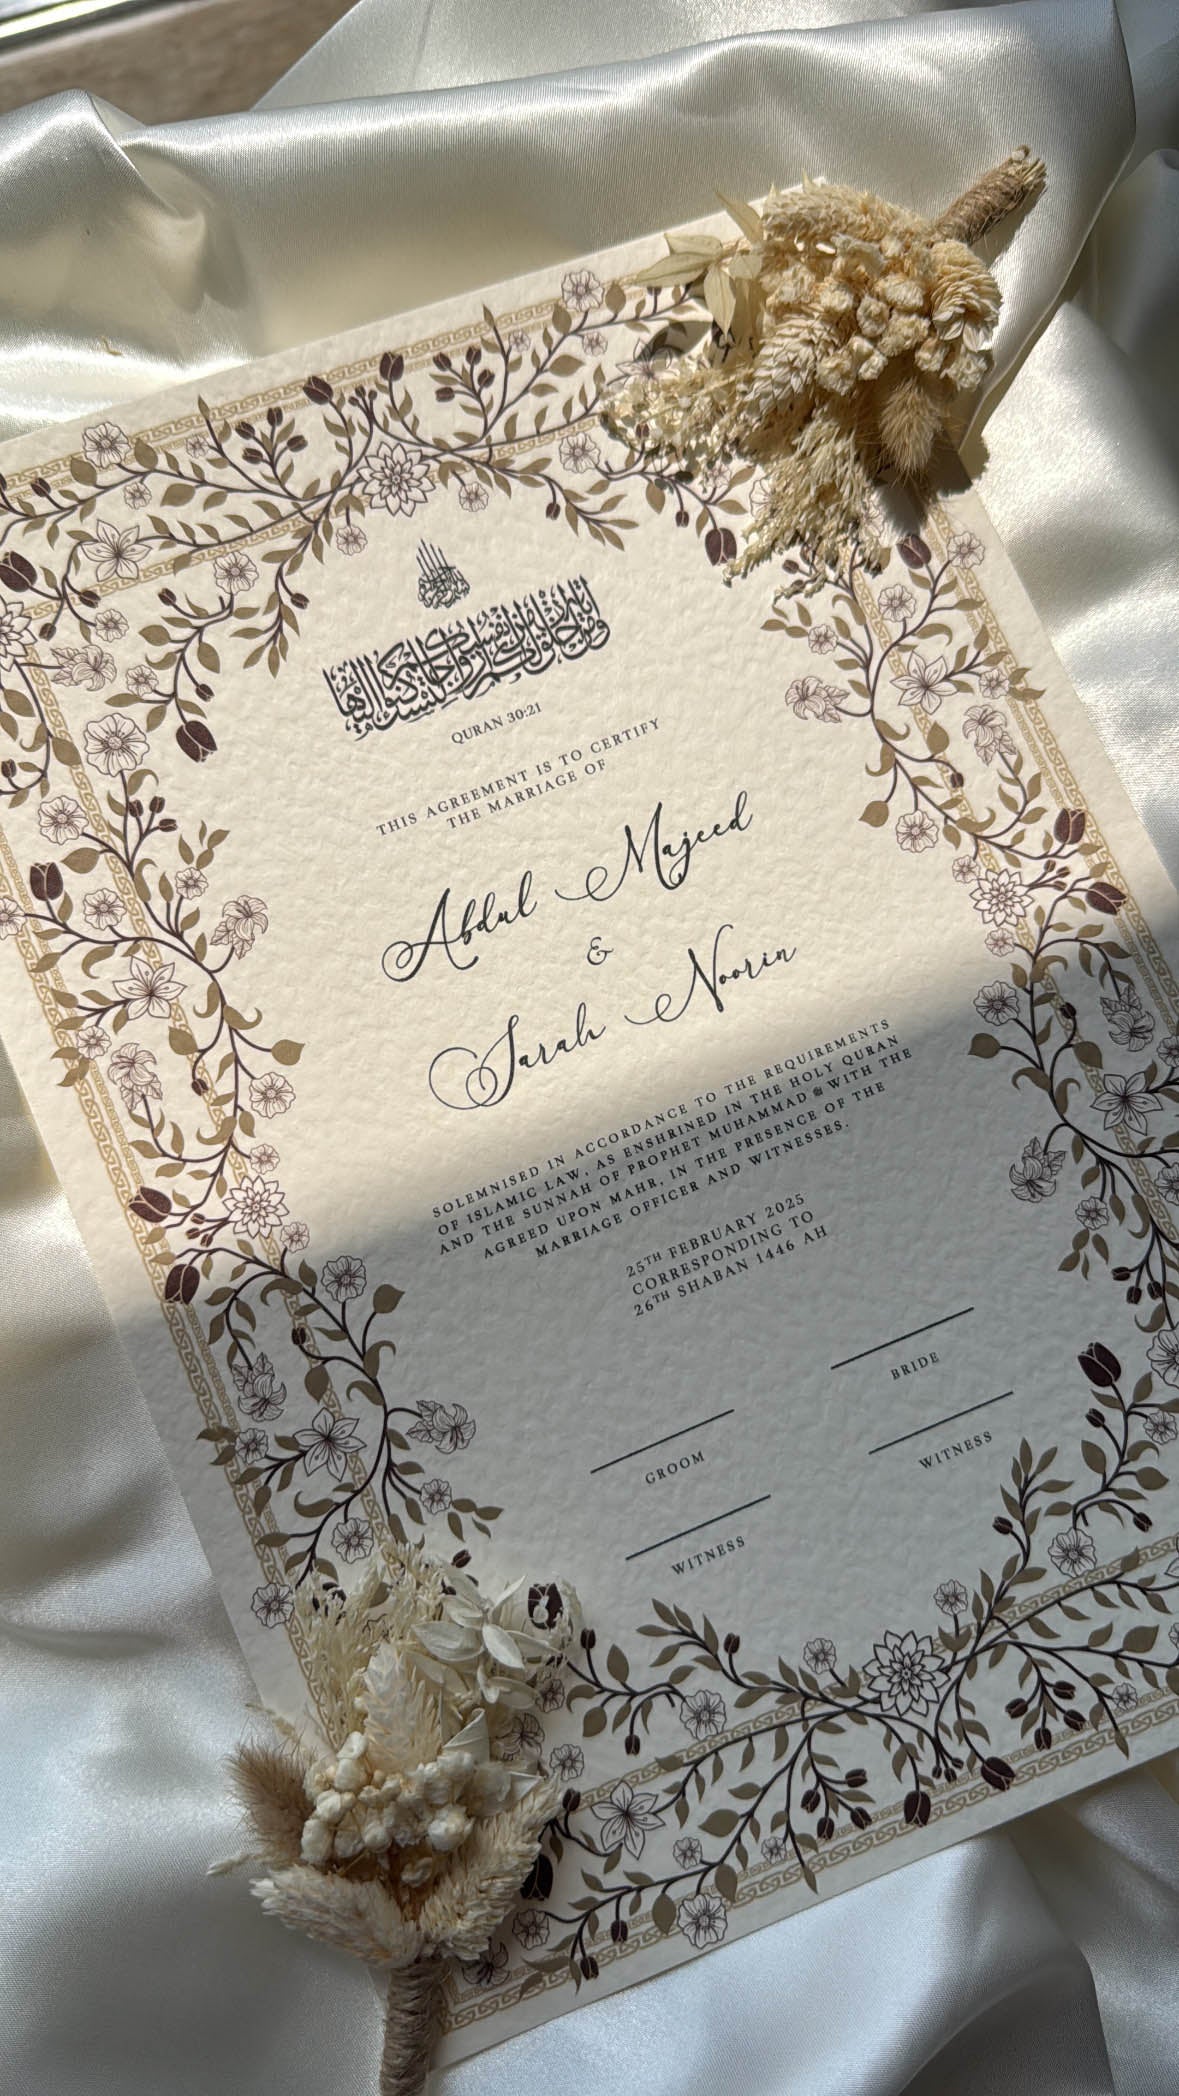 ومن آياته أن خلق لكم من أنفسكم أزواجا لتسكنوا إليها
QURAN 30:21
THIS AGREEMENT IS TO CERTIFY
THE MARRIAGE OF
Abdul Majeed
&
Sarah Noorin
SOLEMNISED IN ACCORDANCE TO THE REQUIREMENTS
OF ISLAMIC LAW, AS ENSHRINED IN THE HOLY QURAN
AND THE SUNNAH OF PROPHET MUHAMMAD ﷺ WITH THE
AGREED UPON MAHR, IN THE PRESENCE OF THE
MARRIAGE OFFICER AND WITNESSES.
25TH FEBRUARY 2025
CORRESPONDING TO
26TH SHABAN 1446 AH
BRIDE
GROOM
WITNESS
WITNESS